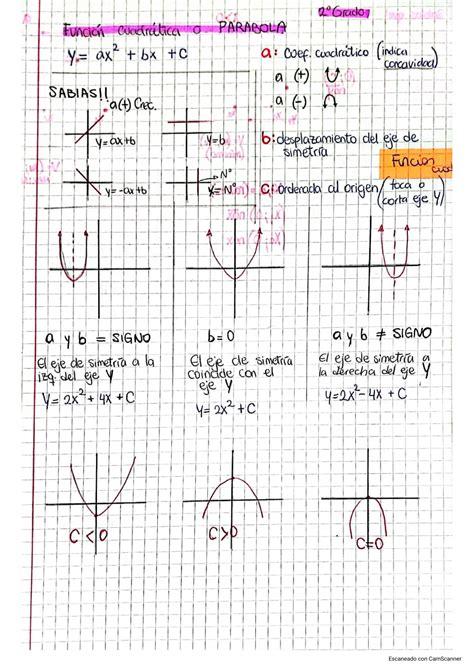 2º Grado
Función Cuadrática o PARABOLA
y = ax² + bx + c
a: Coef. cuadrático (indica concavidad)
a (+) U
a (-) ∩
SABIAS!!
a(+) Crec.
y=ax+b
y=b
y=-ax+b
Nº
X=Nº
b: desplazamiento del eje de simetría
Función
c: Ordenada al origen (toca o corta eje Y)
a y b = SIGNO
El eje de simetría a la izq del eje Y
y = 2x² + 4x + C
b=0
El eje de simetría coincide con el eje Y
y = 2x² + C
a y b ≠ SIGNO
El eje de simetría a la derecha del eje Y
y=2x² - 4x + C
C < 0
C>0
C=0
Escaneado con CamScanner